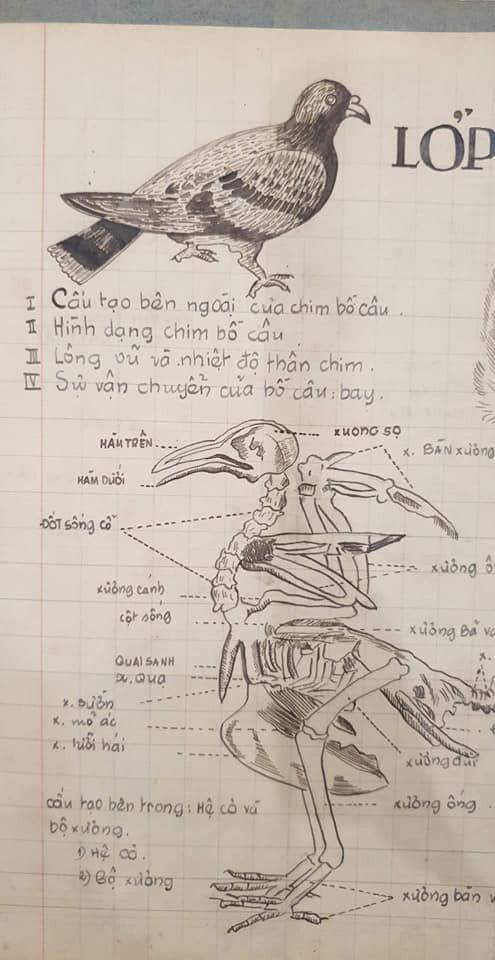 LỚP
I Cấu tạo bên ngoài của chim bồ câu.
II Hình dạng chim bồ câu
III Lông vũ và nhiệt độ thân chim.
IV Sự vận chuyển của bồ câu: bay.
HÀM TRÊN
xương sọ
x. BÀN xương
HÀM DƯỚI
ĐỐT SỐNG CỔ
xương cánh
cột sống
xương Bả
QUAI SANH
x. QUẠ
x. sườn
x. mỏ ác
x. lưỡi hái
xương đùi
xương ống
cấu tạo bên trong: Hệ cơ và
bộ xương.
1) Hệ cơ.
2) Bộ xương
xương bàn